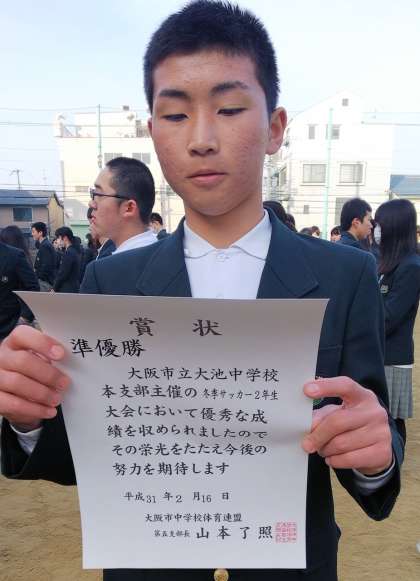 賞状
準優勝
大阪市立大池中学校
本支部主催の冬季サッカー2年生
大会において優秀な成
績を収められましたので
その栄光をたたえ今後の
努力を期待します
平成31年2月16日
大阪市中学校体育連盟
第五支部長 山本了照